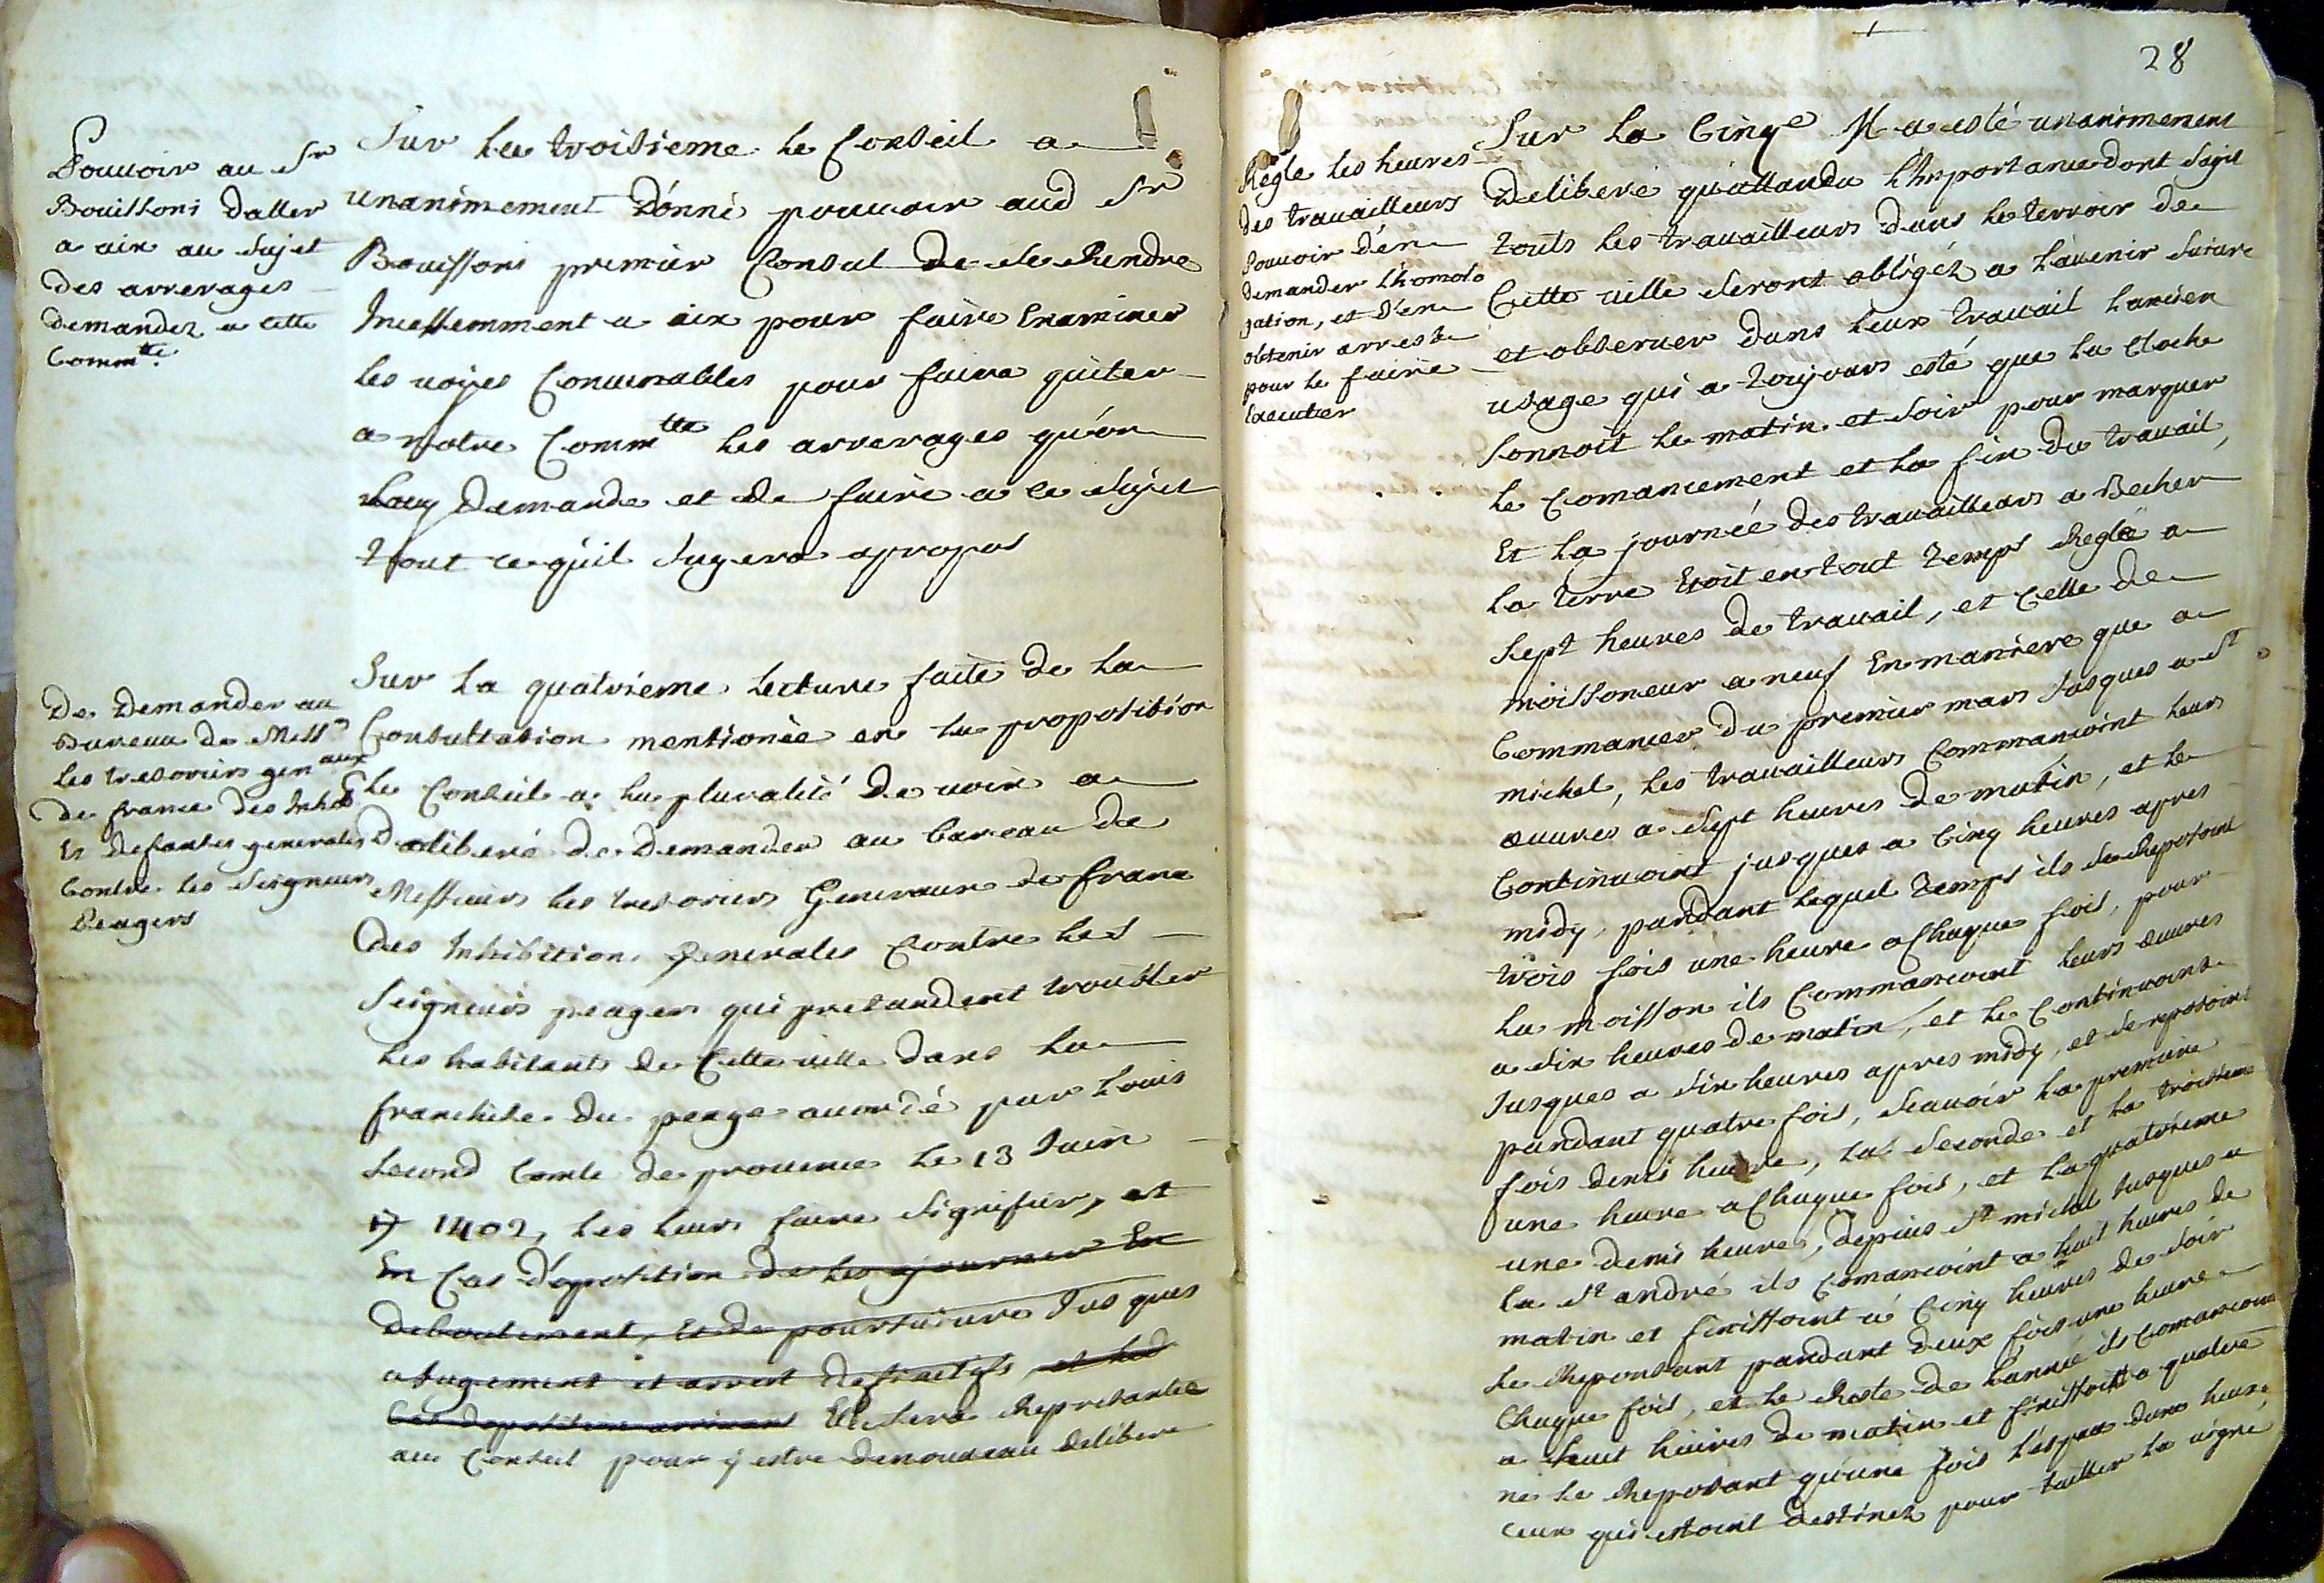 Pouuoir au Sr
Bouissoni daller
a aix au sujet
des arrerages
demandez a cette
Commté.
Sur la troisieme le Conseil a
unanimement Dónné pouuoir aud Sr
Bouissoni premier Consul de se Rendre
Incessemment a aix pour faire Examiner
les uoÿes Conuenables pour faire quiter
a notre Commté les arrerages qu'on
luy Demande et de faire a ce sujet
tout ce qúil Jugera apropos
De Demander au
Bureau de Messrs
les tresoriers genaux
de france des Inhõns
Et defantes generales
Contre les seigneurs
Peagers
Sur la quatrieme lecture faite de la
Consultation mentionée en la proposition
Le Conseil a la pluralité de uoix a
Deliberé de Demander au bureau de
Messieurs les tresoriers Generaux de france
Des Inhibitions generales Contre les
seigneurs peagers qui pretandent troubler
les habitants de Cette uille dans la
franchise du peage accordé par Louis
second Comte de prouence le 13 Juin
1402, les leur faire signifier, et
En Cas d'oposition de les ajourner En
deboutement, Et de poursuiure Jusques
a Jugement et arrest definitifs, et led
Cas dopposition arriuant Elle sera Represantée
au Conseil pour ÿ estre denouueau deliberé
28
Regle les heures
des trauailleurs
Pouuoir d'en
demander l'homolo
gation, et d'en
obtenir arrest
pour le faire
Executer
Sur la Cinqe Il a esté unanimement
Deliberé qu'attandu l'Importance dont s'agit
touts les trauailleurs dans le terroir de
Cette uille seront obligéz a l'auenir suiure
et obseruer dans leur trauail lancien
usage qui a toujours esté que la cloche
sonnoit le matin et soir pour marquer
le Comancement et la fin du trauail,
Et la journée des trauailleurs a Becher
la terre Etoit en tout temps Reglée a
sept heures de trauail, et Celle de
moissoneur a neuf En maniere que a
Commancer du premier mars Jusques a St
michel, les trauailleurs Commancoint leurs
œuures a sept heures de matin, et le
Continuoint jusques a Cinq heures apres
midy, pandant lequel temps ils se Reposoint
trois fois une heure a Chaque fois, pour
la moisson ils Commancoint leurs œuures
a six heures de matin, et le Continuoint
Jusques a six heures apres midy, et se reposoint
pandant quatre fois, scauoir la premiere
fois demi heure, la seconde et la troisieme
une heure a Chaque fois, et la quatrieme
une demi heure, depuis St michel Jusques a
la St andré ils Comancoint a huit heures de
matin et finissoint a Cinq heures de soir
se Reposant pandant deux fois une heure
Chaque fois, et le Reste de l'année ils Comancoint
a huit heures de matin et finissoint a quatre
ne se Reposant qu'une fois l'espace dune heure
ceux qui estoint destinez pour tailler la uigne